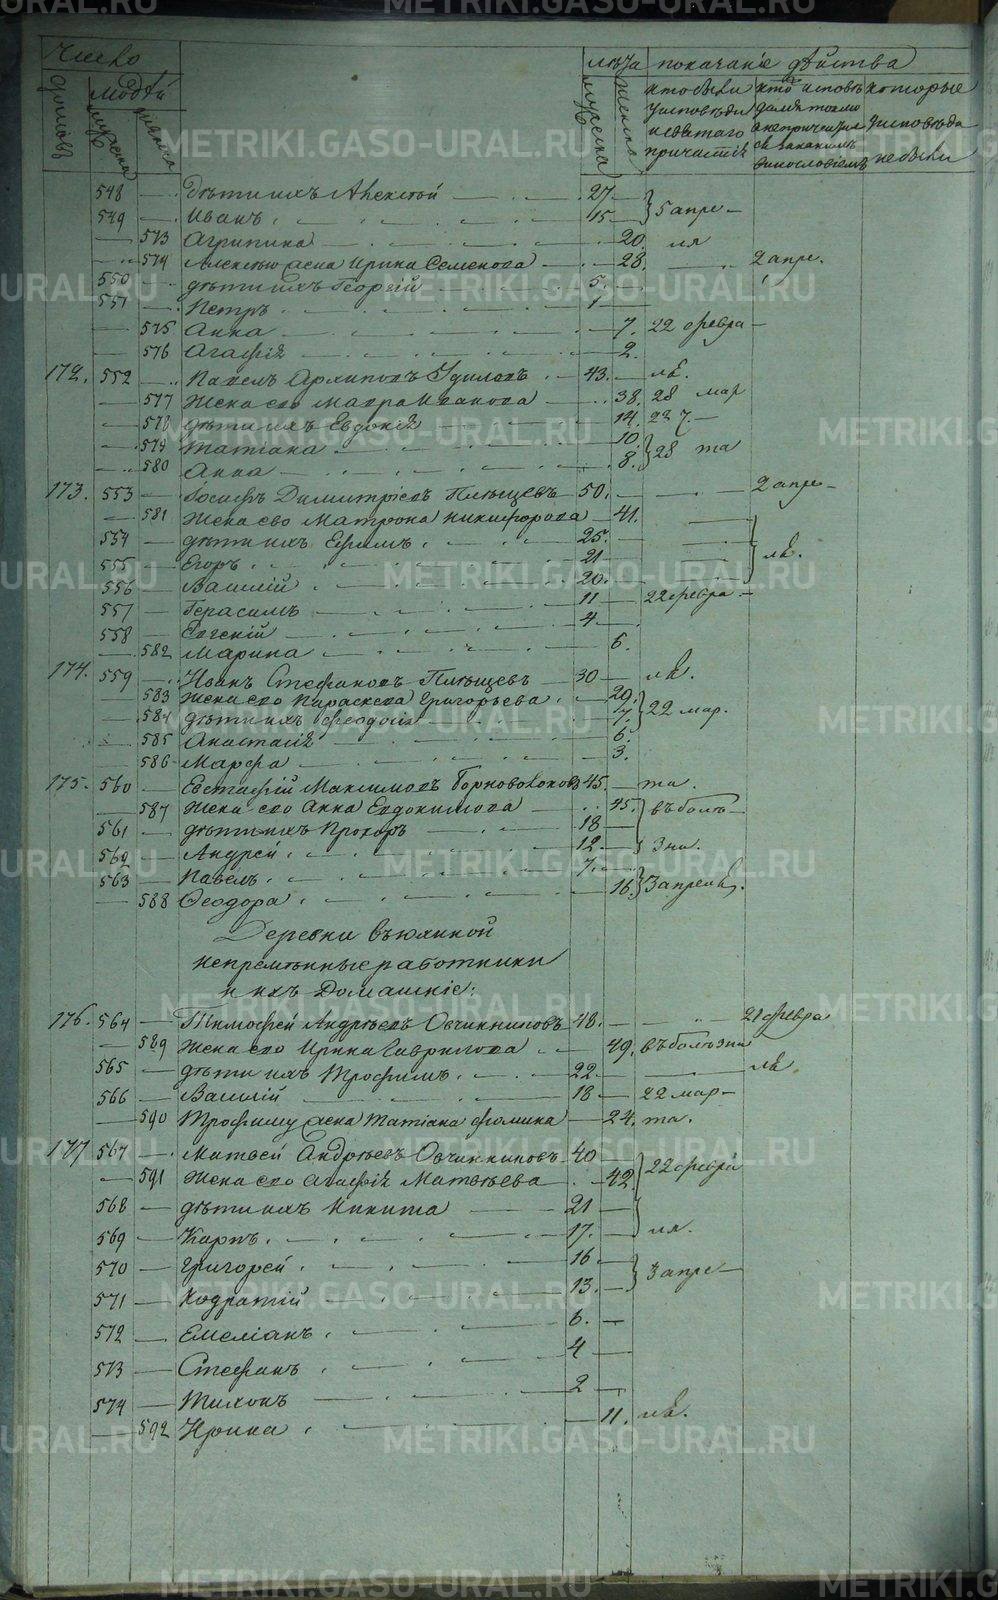 Число лѣта показаніе дѣйства
домовъ людей мужеска женска мужеска женска
кто были у исповѣди и святаго причастія
кто исповѣдался токмо а не причастился за какимъ винословіемъ
которые у исповѣди не были
548 Дѣти ихъ Алексѣй 27
549 Иванъ 15 5 апре
573 Агрипина 20. ля
574 Алексѣю жена Ирина Семенова 28. 2 апре.
550 дѣти ихъ Георгій 5.
551 Петръ 1
575 Анна 7. 22 февра
576 Агафія 2.
172. 552 Павелъ Архиповъ 43. ля.
577 жена его Мавра Иванова 38. 28 мар
578 дѣти ихъ Евдокія 14. 28
579 Татіана 10.
580 Анна 8. 28 та
173. 553 Іосифъ Димитріевъ Плющевъ 50. 2 апре
581 жена его Матрона Никифорова 41.
554 дѣти ихъ Ефимъ 25.
555 Егоръ 21 ля.
556 Василій 20.
557 Герасимъ 11 22 февра
558 Евгеній 4
582 Марина 6.
174. 559 Иванъ Стефановъ Плющевъ 30 ля.
583 жена его Параскева Григорьева 29.
584 дѣти ихъ Феодосія 7. 22 мар.
585 Анастасія 6.
586 Марфа 3.
175. 560 Евстафій Максимовъ 45. та.
587 жена его Анна Евдокимова 45. въ болѣ
561 дѣти ихъ Прохоръ 18
562 Андрей 12 зни.
563 Павелъ 7.
588 Ѳеодора 16. 3 апреля.
Деревни Вьюхиной
непремѣнные работники
и ихъ Домашніе:
176. 564 Тимофей Андрѣевъ Овчинниковъ 48. 21 февра
589 жена его Ирина Гаврилова 49. въ болѣзни
565 дѣти ихъ Трофимъ 22. ля
566 Василій 18 22 мар
590 Трофиму жена Татіана Фомина 24. та.
177 567 Матвей Андрѣевъ Овчинниковъ 40
591 жена его Агафія Матвѣева 42. 22 февра
568 дѣти ихъ Никита 21
569 Карпъ 17. ля.
570 Григорей 16
571 Кодратій 13. 3 апре
572 Емеліанъ 6.
573 Стефанъ 4
574 Тихонъ 2
592 Ирина 11. ля.
METRIKI.GASO-URAL.RU